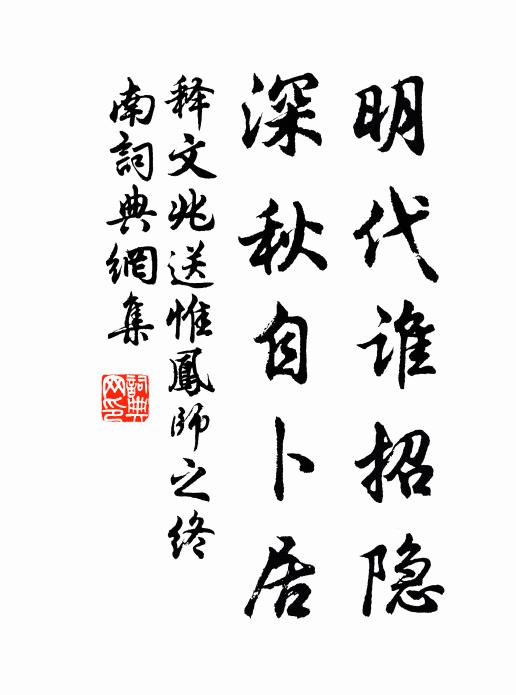 明代谁招隐
深秋自卜居
释文兆送惟鳳师之终
南詞典網集
詞典网印